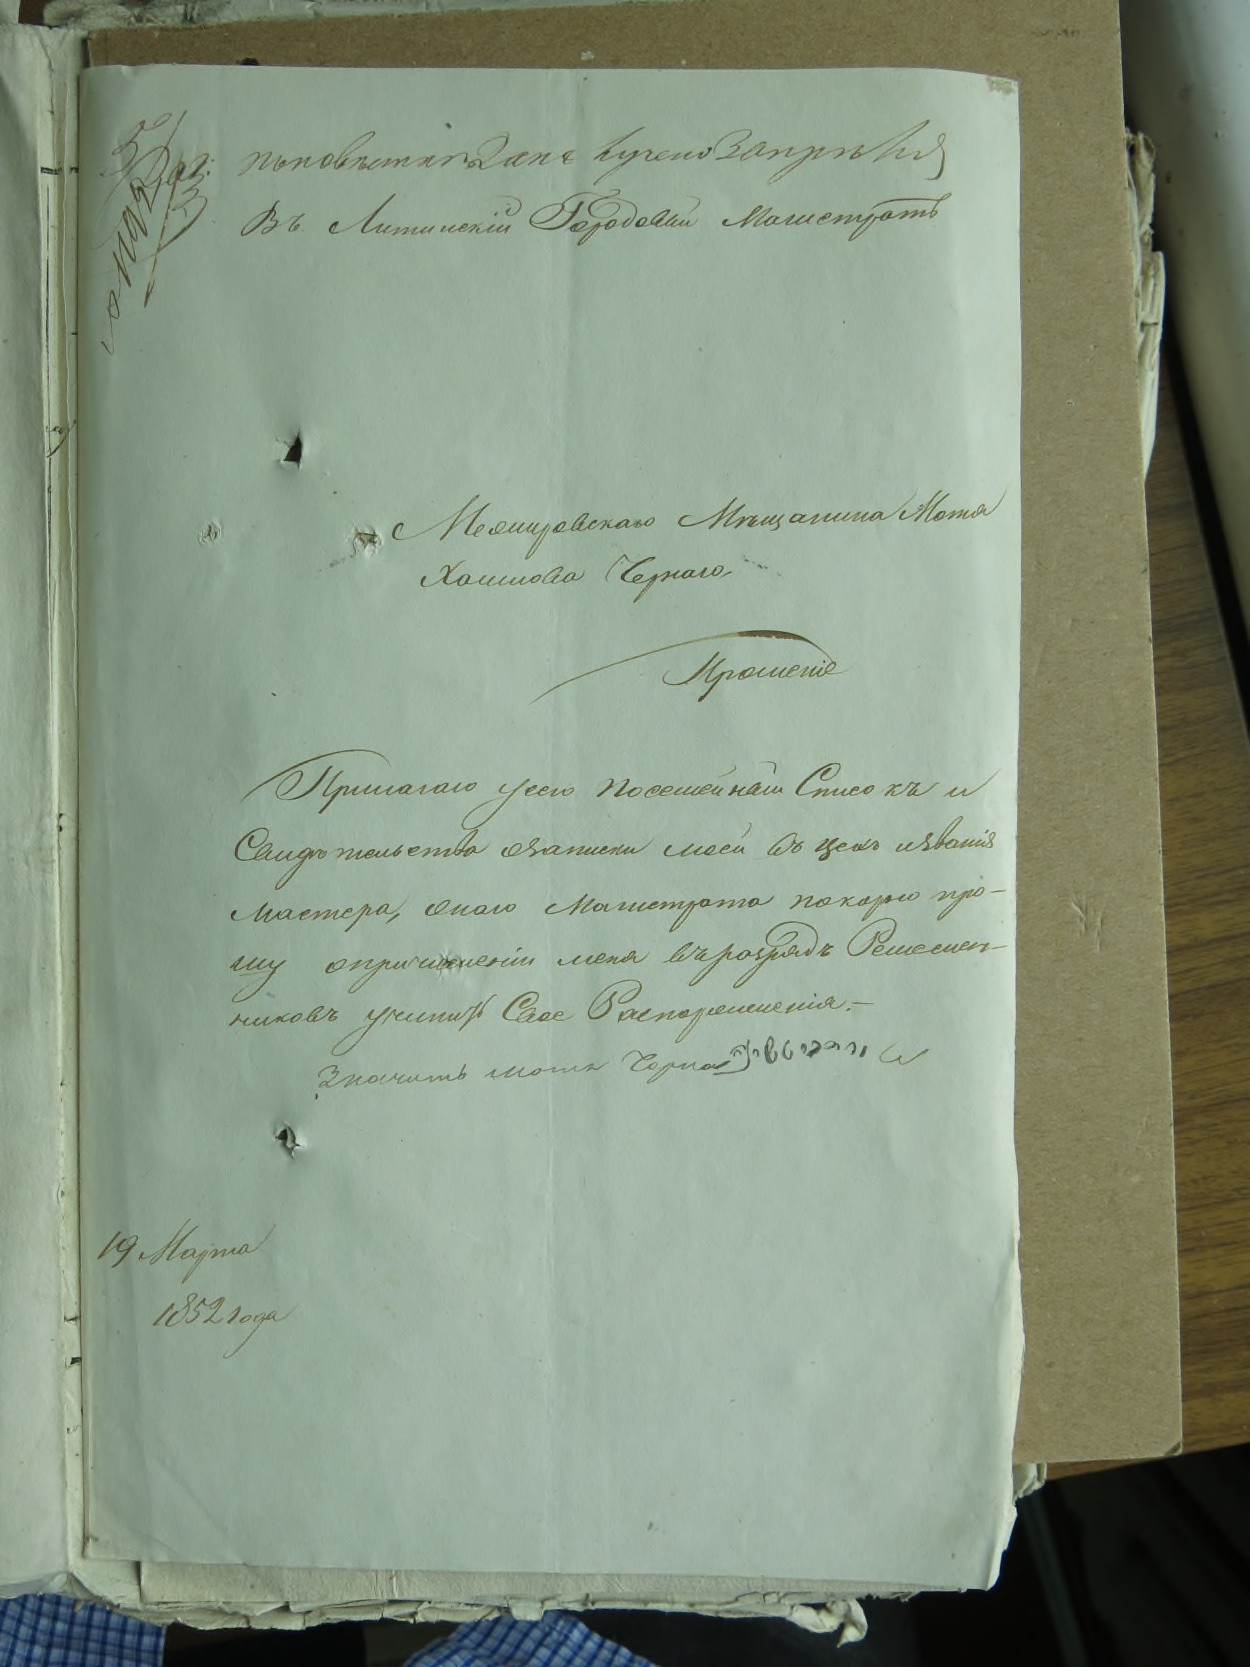 Въ Литинскій Городовый Магистратъ
Немировскаго Мѣщанина Мотя
Хаимова Чернаго,
Прошеніе
Прилагаю усего посемейный Списокъ и
Свидѣтельства озаписки моей въ цехъ извания
мастера, онаго Магистрата покорно про-
шу опричисленіи меня въ розрядъ Ремеслен-
никовъ учинить Свое Распоряженія.—
Значить мотя Чорна
19 Марта
1852 года